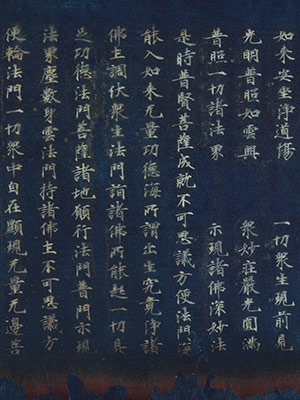 如來安坐淨道場　一切衆生現前見
光明普照如雲興　衆妙莊嚴光圓滿
普照一切諸法界　示現諸佛深妙法
是時普賢菩薩成就不可思議方便法門
能入如來无量功德海所謂出生究竟淨諸
佛土調伏衆生法門詣諸佛所能起一切具
足功德法門菩薩諸地願行法門普門示現
法界塵數身雲法門持諸佛土不可思議方
便輪法門一切衆中自在顯現无量无邊